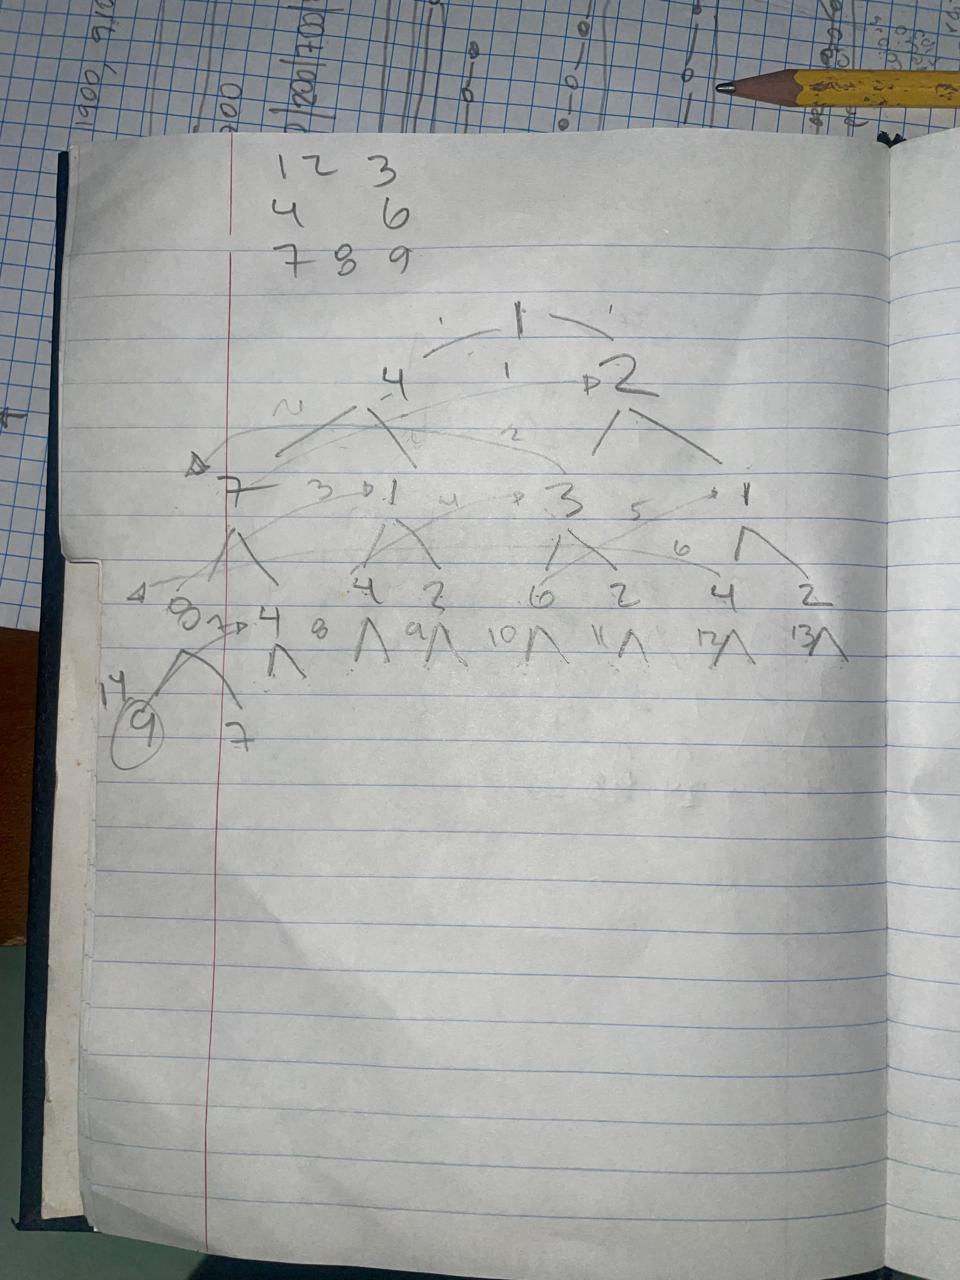 1 2 3
4 6
7 8 9
1
4 1 2
2 2
7 3 1 4 3 5 1
6
8 4 4 2 6 2 4 2
7 8 9 10 11 12 13
14
9 7